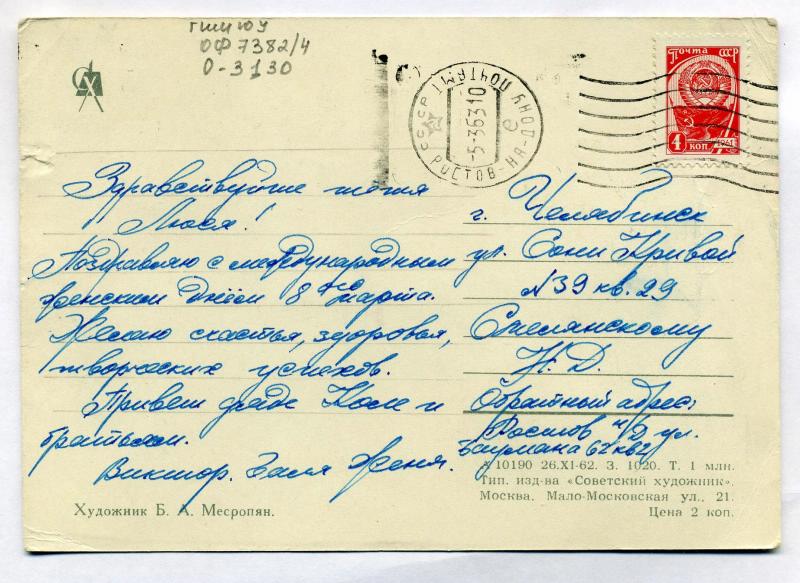 гшмюу
ОФ 7382/4
0-3130
ПОЧТА СССР
4 КОП. 1961
СССР РОСТОВ-НА-ДОНУ ПОЧТАМТ
-5.36310
е
Здравствуйте тётя
Люся!
Поздравляю с международным
женским Днём 8го марта.
Желаю счастья, здоровья,
творческих успехов.
Привет дяде Коле и
братьям.
Виктор. Валя Женя.
г. Челябинск
ул. Сони Кривой
N39 кв. 29
Смелянскому
Н. Д.
Обратный адрес:
Ростов н/Д ул.
Баумана 62 кв 2
А 10190 26.XI-62. З. 1020. Т. 1 млн.
Тип. изд-ва «Советский художник».
Москва. Мало-Московская ул., 21.
Цена 2 коп.
Художник Б. А. Месропян.